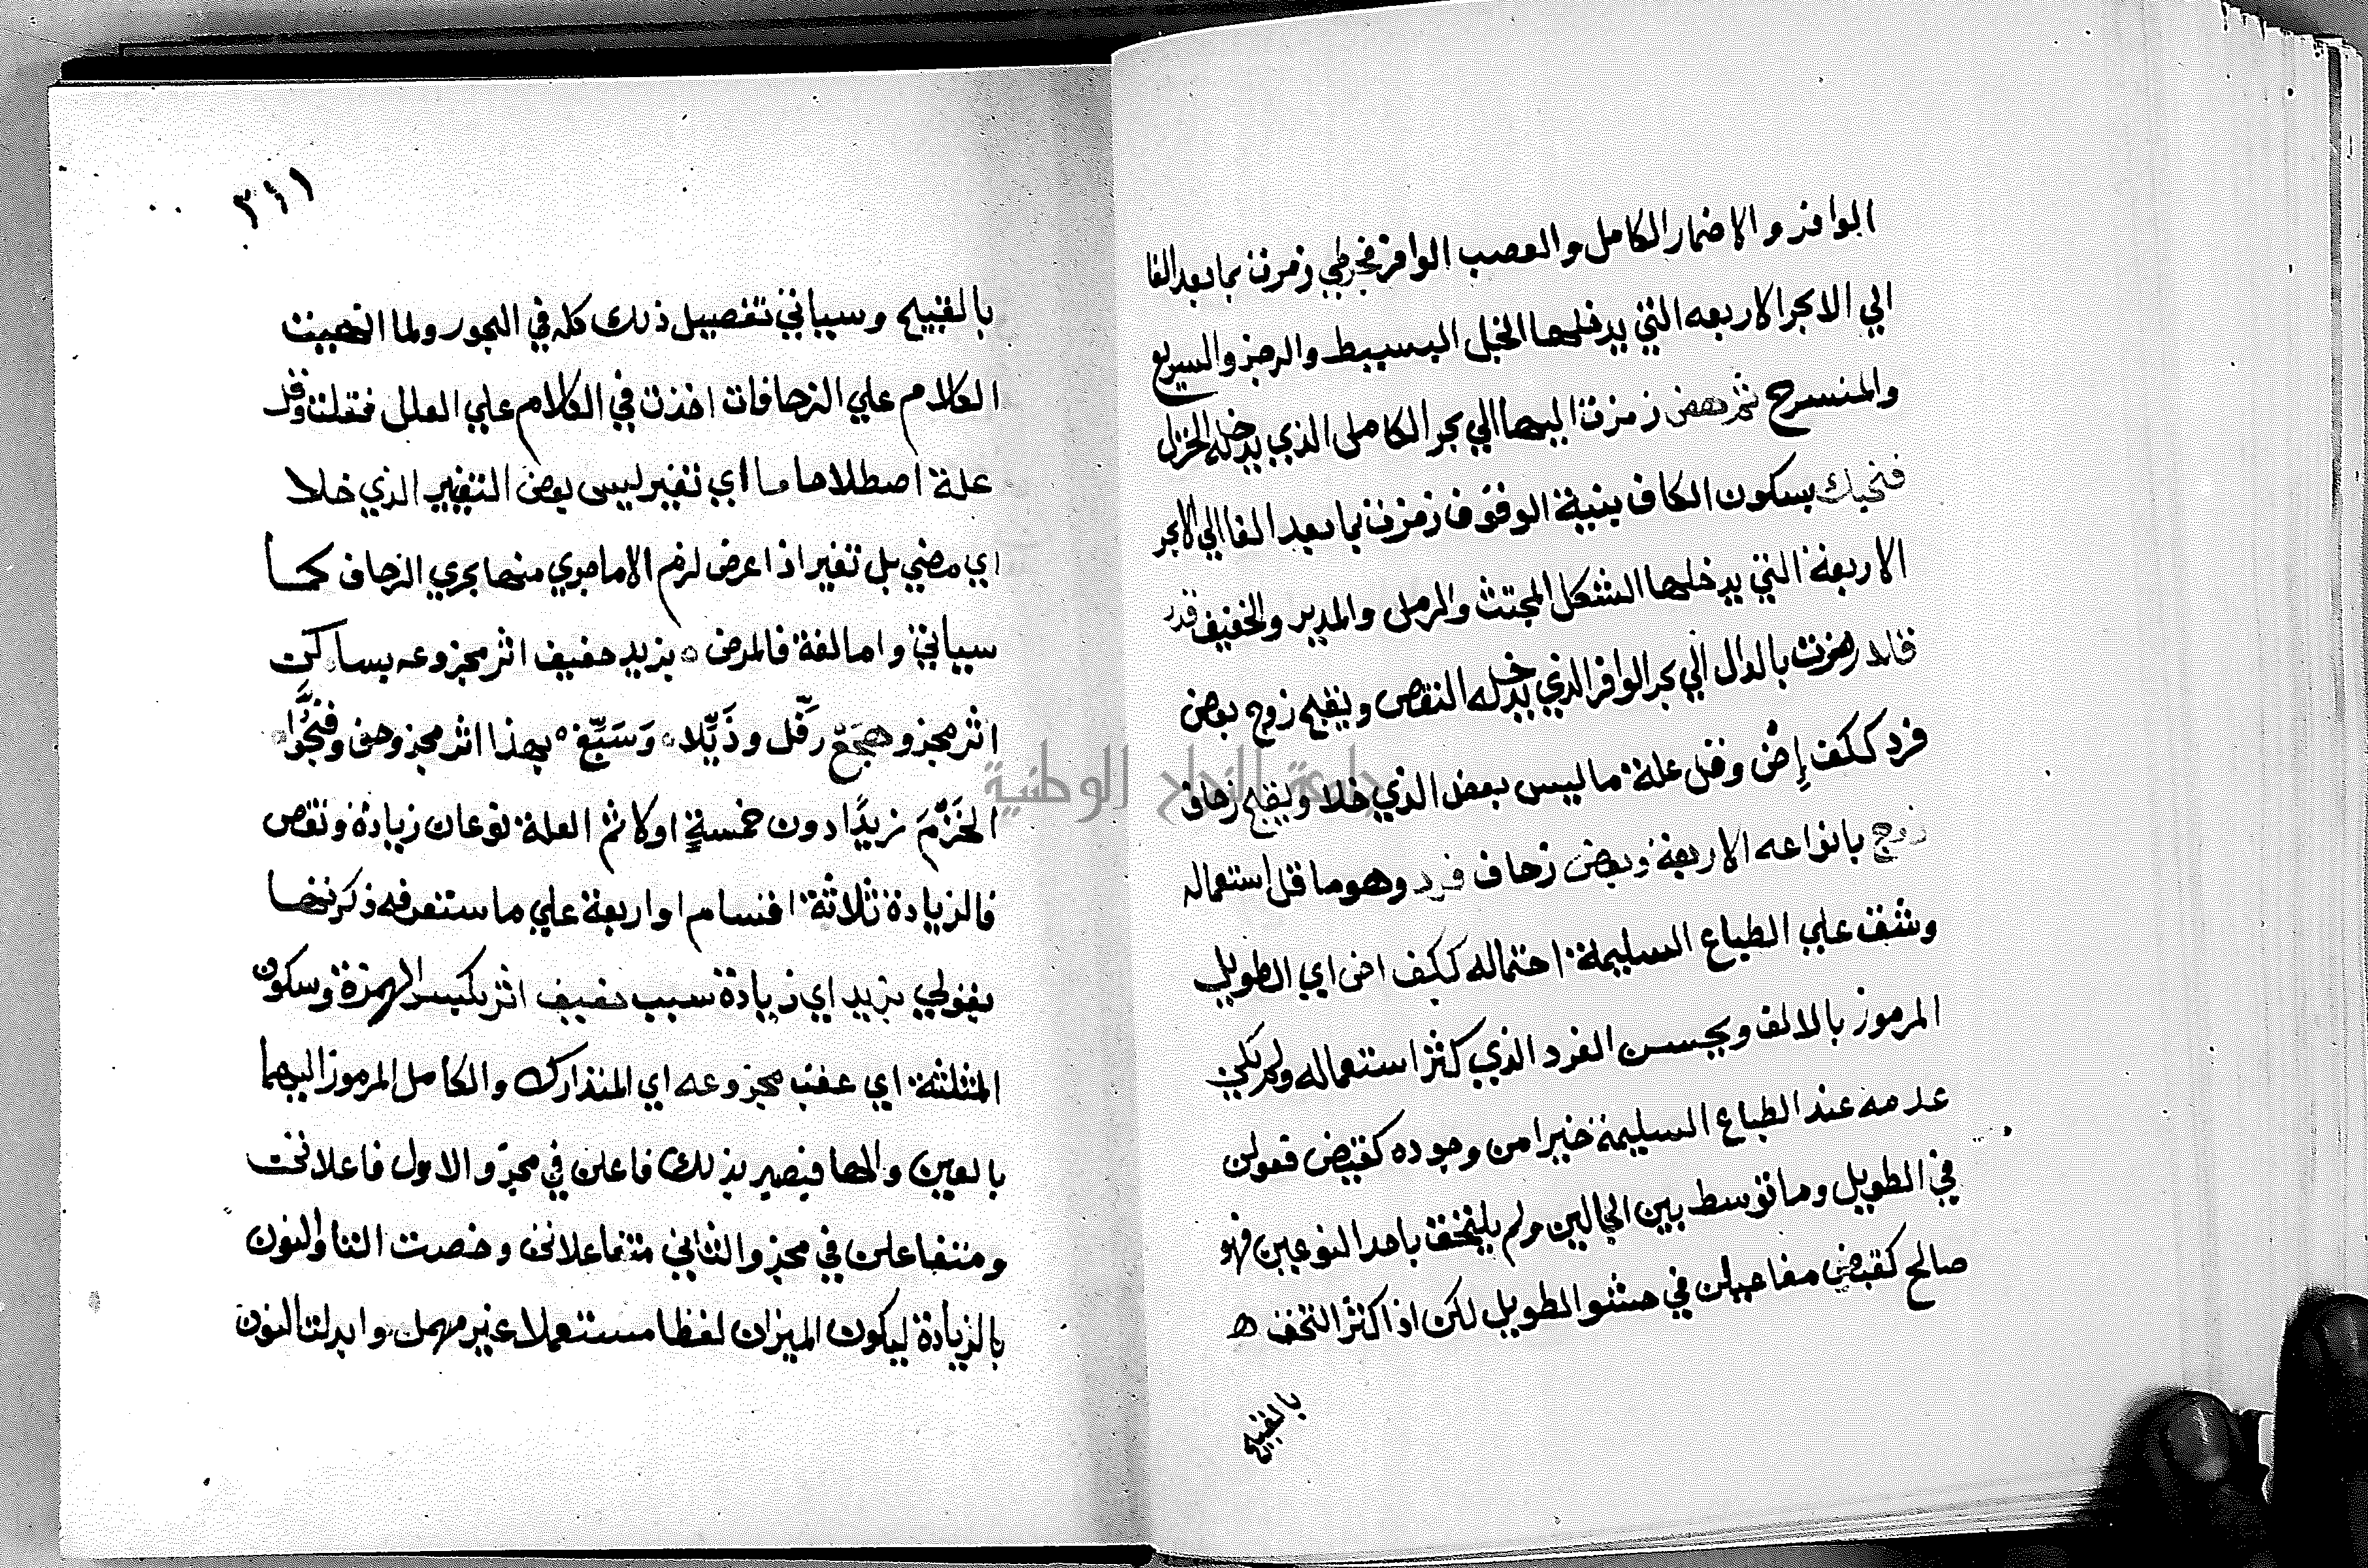 الوافر والاضمار الكامل والعصب الوافر فجرطي زمزت بما بعد الفا
الي الابحر الاربعه التي يدخلها الخبل البسيط والرجز والسريع
والمنسرح ثم بعض زمزت اليها الي بحر الكامل الذي يدخله الخزل
بسكون الكاف بنية الوقوف زمزت بما بعد الفا الي الابحر
الاربعة التي يدخلها الشكل المجتث والرمل والمديد والخفيف قدر
رمزت بالدال الي بحر الوافر الذي يدخله النقص ويقبح زوج بعض
فرد ككف إض وقل علة ما ليس بعض الذي خلا ويقبح زحاف
زوج بانواعه الاربعة وبعض زحاف فرد وهو ما قل استعماله
وشق علي الطباع السليمة احتماله ككف اض اي الطويل
المرموز بالالف ويحسن الفرد الذي كثر استعماله ولم يكن
عدمه عند الطباع السليمة خيرا من وجوده كقبض فعولن
في الطويل وما توسط بين الحالين ولم يلتحق باحد النوعين فهو
صالح كقبض مفاعيلن في حشو الطويل لكن اذا كثر التحق ه
بالقبيح
جامعة النجاح الوطنية
٣١١
بالقبيح وسياتي تفصيل ذلك كله في البحور ولما انهيت
الكلام علي الزحافات اخذت في الكلام علي العلل فقلت وقل
علة اصطلاحا ما اي تغير ليس بعض التغيير الذي خلا
اي مضي بل تغير اذا عرض لزم الا ما جري منها مجري الزحاف كما
سياتي واما لغة فالمرض ه بزيد خفيف اثر مجزوعه بساكن
اثر مجزو هجع رفّل وذَيّلا ه وَسَبّغ ه بهذا اثر مجزو حق وفتحوا
الخَزْمَ زيدًا دون خمسةٍ اولا ثم العلة نوعان زيادة ونقص
فالزيادة ثلاثة اقسام او اربعة علي ما ستعرفه ذكرتها
بقولي بزيد اي زيادة سبب خفيف اثر بكسر الهمزة وسكون
المثلثة اي عقب مجزوعه اي المتدارك والكامل المرموز اليهما
بالعين والها فيصير بذلك فاعلن في مجزو الاول فاعلاتن
ومتفاعلن في مجزو الثاني متفاعلاتن وخصت التا والنون
بالزيادة ليكون الميزان لفظا مستعملا غير مهمل وابدلت النون